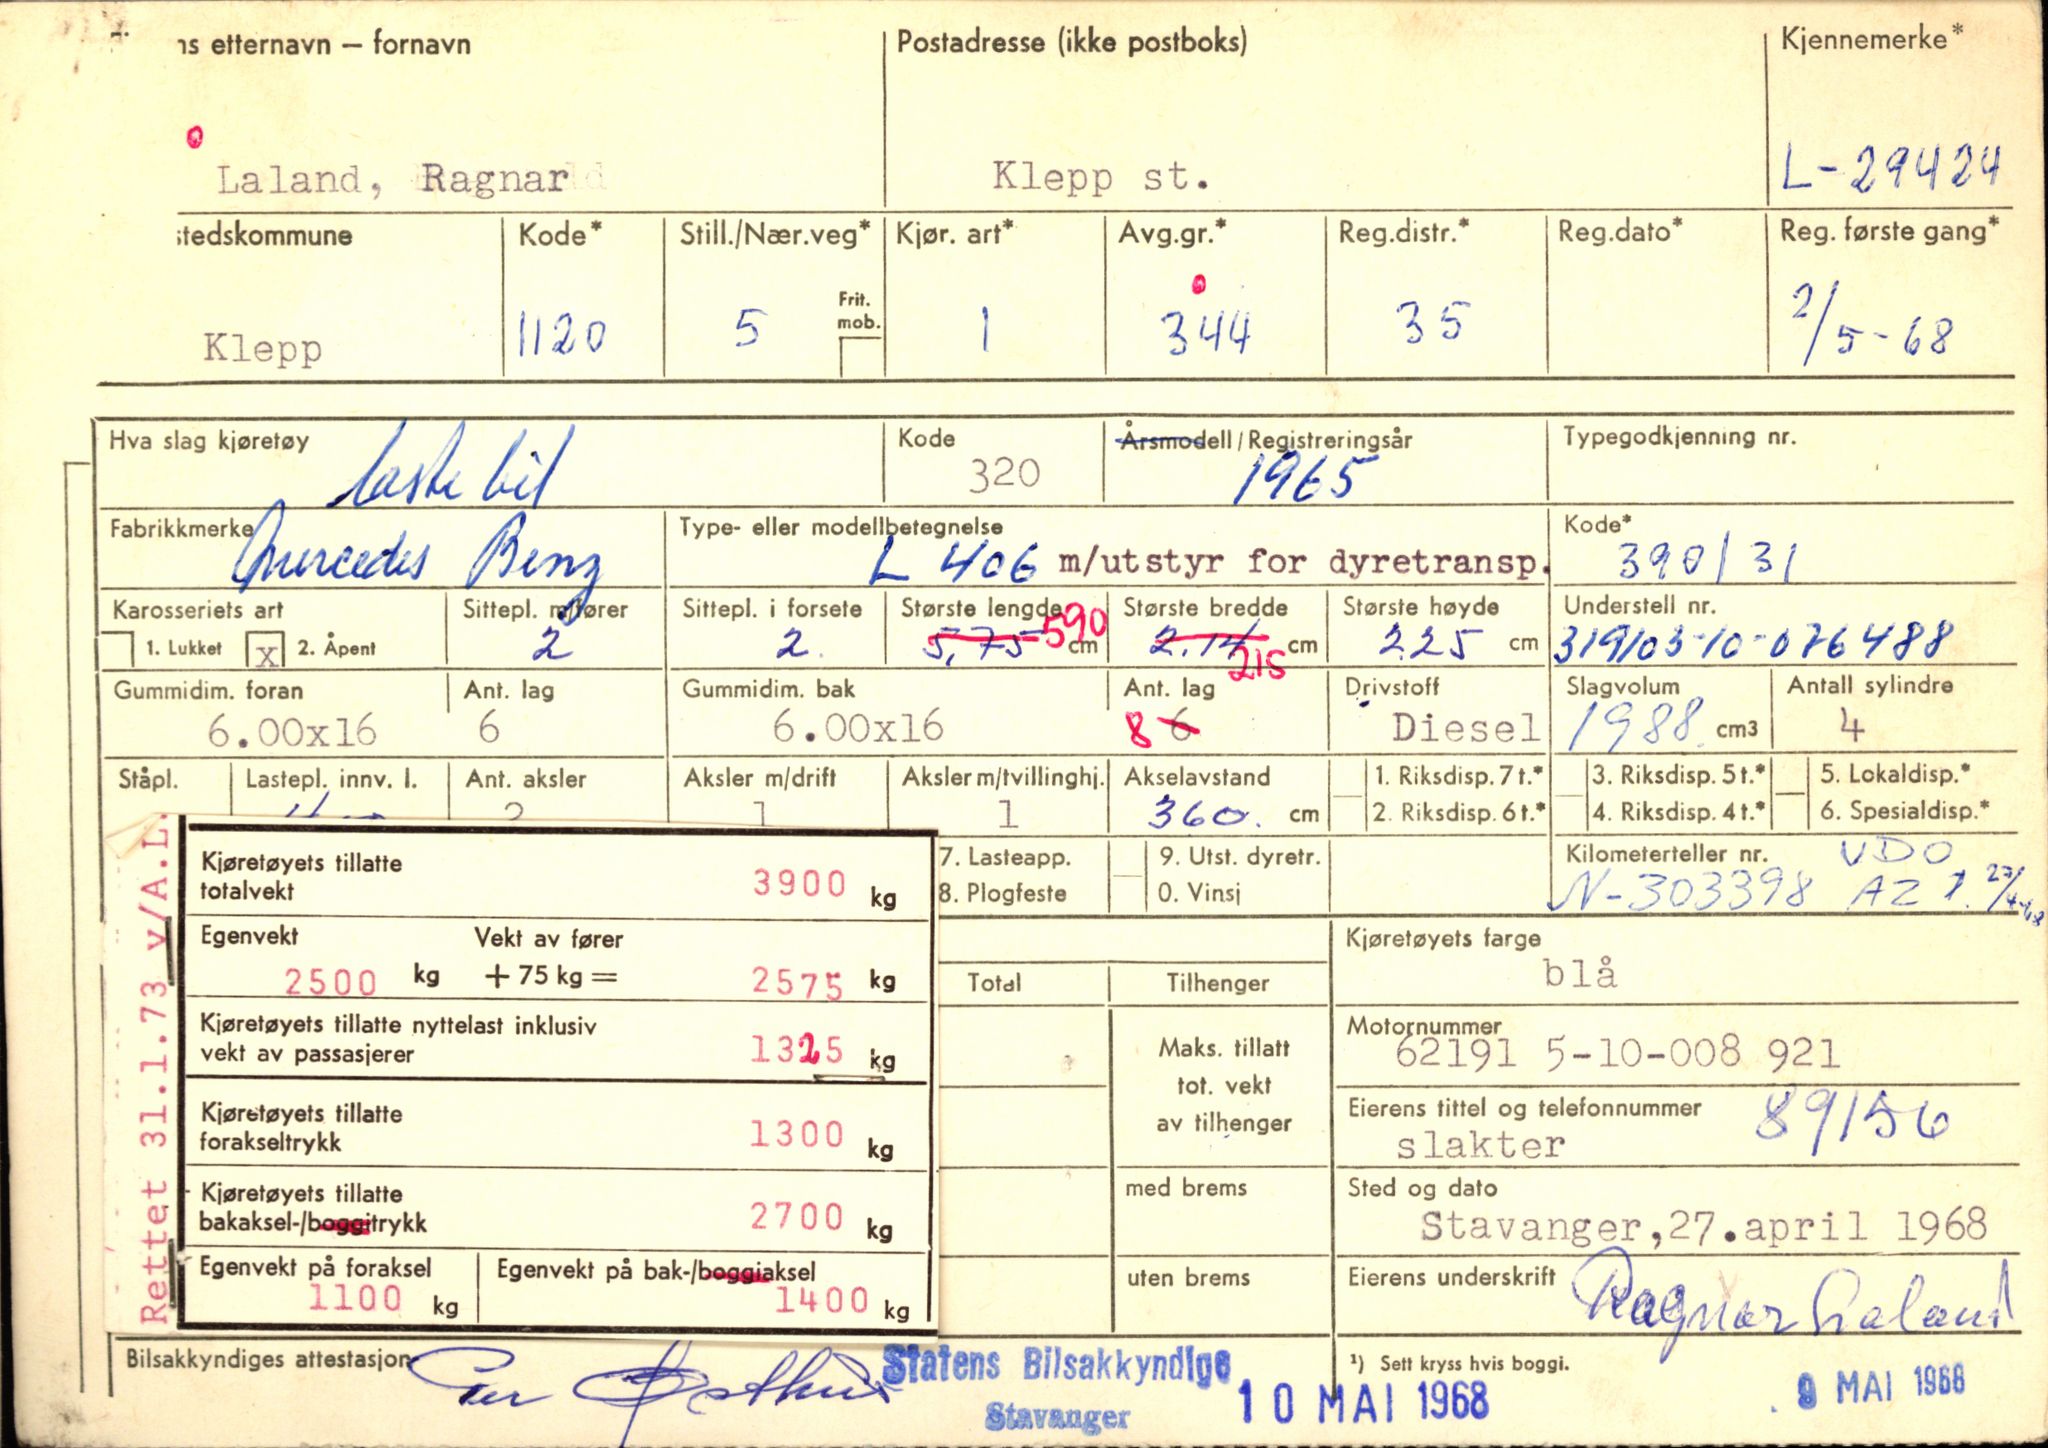 ns etternavn – fornavn
Postadresse (ikke postboks)
Kjennemerke*
Laland, Ragnar
Klepp st.
L-29424
stedskommune
Kode*
Still./Nær.veg*
Kjør. art*
Avg.gr.*
Reg.distr.*
Reg.dato*
Reg. første gang*
Klepp
1120
5
Frit. mob.
1
344
35
2/5-68
Hva slag kjøretøy
lastebil
Kode
320
Årsmodell/Registreringsår
1965
Typegodkjenning nr.
Fabrikkmerke
Mercedes Benz
Type- eller modellbetegnelse
L 406 m/utstyr for dyretransp.
Kode*
390/31
Karosseriets art
1. Lukket x 2. Åpent
Sittepl. m/fører
2
Sittepl. i forsete
2.
Største lengde
5,75 590 cm
Største bredde
2.14 215 cm
Største høyde
225 cm
Understell nr.
319/03-10-076488
Gummidim. foran
6.00x16
Ant. lag
6
Gummidim. bak
6.00x16
Ant. lag
8 6
Drivstoff
Diesel
Slagvolum
1988 cm3
Antall sylindre
4
Ståpl.
Lastepl. innv. l.
Ant. aksler
2
Aksler m/drift
1
Aksler m/tvillinghj.
1
Akselavstand
360. cm
1. Riksdisp. 7 t.*
2. Riksdisp. 6 t.*
3. Riksdisp. 5 t.*
4. Riksdisp. 4 t.*
5. Lokaldisp.*
6. Spesialdisp.*
7. Lasteapp.
8. Plogfeste
9. Utst. dyretr.
0. Vinsj
Kilometerteller nr. VDO
N-303398 AZ 1. 27/4-68
Rettet 31.1.73 v/A.L.
Kjøretøyets tillatte
totalvekt 3900 kg
Egenvekt
2500 kg
Vekt av fører
+ 75 kg = 2575 kg
Kjøretøyets tillatte nyttelast inklusiv
vekt av passasjerer 1325 kg
Kjøretøyets tillatte
forakseltrykk 1300 kg
Kjøretøyets tillatte
bakaksel-/boggitrykk 2700 kg
Egenvekt på foraksel
1100 kg
Egenvekt på bak-/boggiaksel
1400 kg
Total
Tilhenger
Maks. tillatt
tot. vekt
av tilhenger
med brems
uten brems
Kjøretøyets farge
blå
Motornummer
62191 5-10-008 921
Eierens tittel og telefonnummer
slakter 89156
Sted og dato
Stavanger, 27. april 1968
Eierens underskrift
Ragnar Laland
Bilsakkyndiges attestasjon
Statens Bilsakkyndige
Stavanger
10 MAI 1968
¹) Sett kryss hvis boggi.
9 MAI 1968